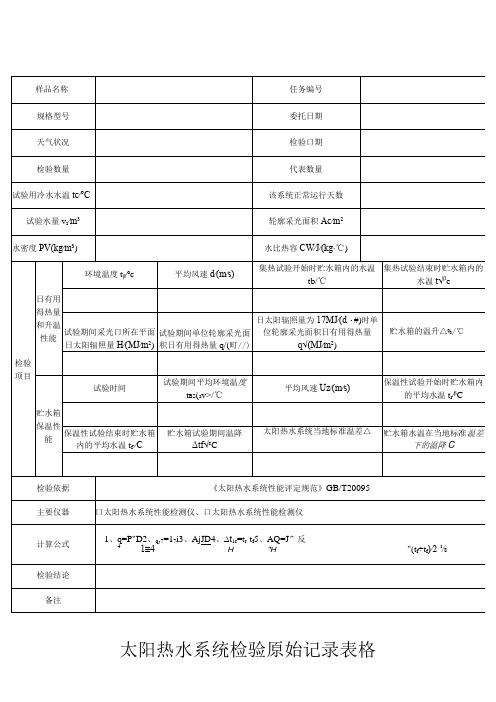 样品名称 任务编号
规格型号 委托日期
天气状况 检验口期
检验数量 代表数量
试验用冷水水温 tc/°C 该系统正常运行天数
试验水量 vs/m³ 轮廓采光面积 Ac/m²
水密度 PV(kg/m³) 水比热容 CW/J/(kg·℃)
检验项目
日有用得热量和升温性能
环境温度 平均风速 d/(m/s) 集热试验开始时贮水箱内的水温 tb/℃ 集热试验结束时贮水箱内的水温
试验期间采光口所在平面日太阳辐照量 H/(MJ/m²) 试验期间单位轮廓采光面积日有用得热量 q/(町//) 日太阳辐照量为 17MJ/(d·#)时单位轮廓采光面积日有用得热量 q√(MJ/m²) 贮水箱的温升△%/℃
贮水箱保温性能
试验时间 试验期间平均环境温度 平均风速 Uz/(m/s) 保温性试验开始时贮水箱内的平均水温
保温性试验结束时贮水箱内的平均水温 贮水箱试验期间温降 太阳热水系统当地标准温差△ 贮水箱水温在当地标准温差下的温降 C
检验依据 《太阳热水系统性能评定规范》GB/T20095
主要仪器 口太阳热水系统性能检测仪、口太阳热水系统性能检测仪
计算公式
检验结论
备注
太阳热水系统检验原始记录表格